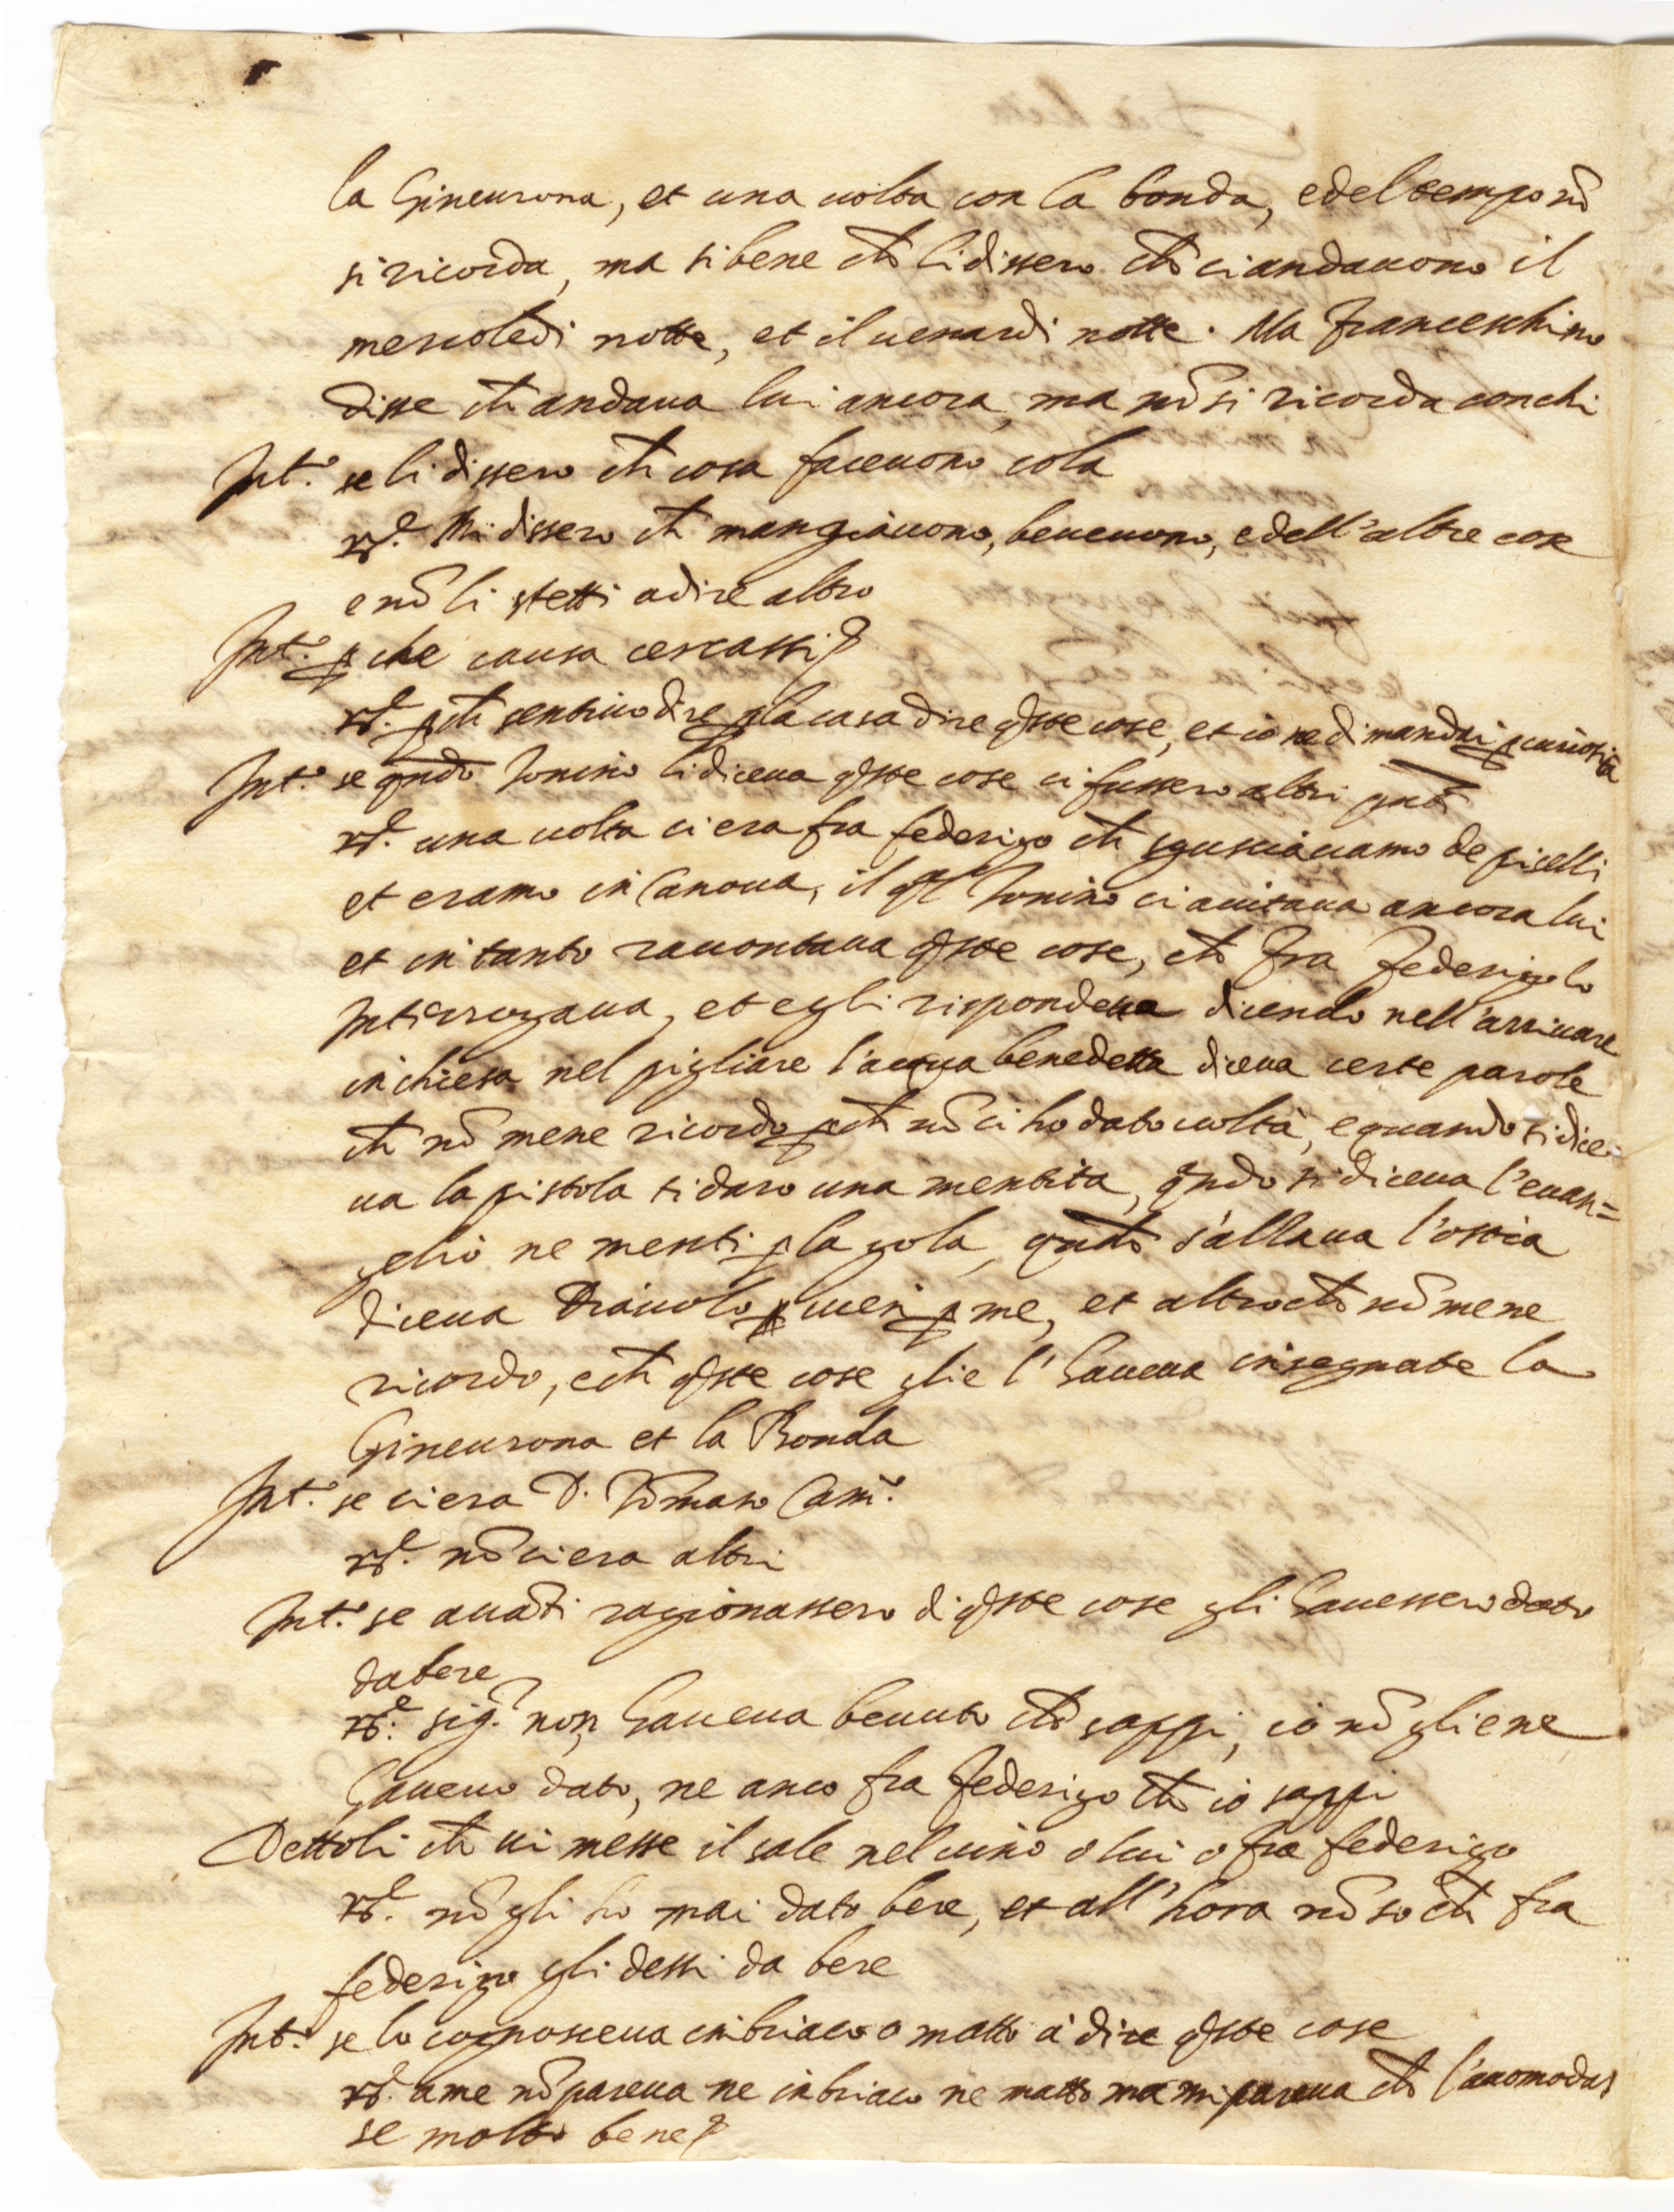 la Gineurona, et una uolta con la bonda, e del tempo nō
si ricorda, ma si bene ch̃ li dissero ch̃ ci andauono il
mercoledi notte, et il uenardi notte. Ma franceschino
disse ch̃ andaua lui ancora, ma nō si ricorda con chi
Int.º se li dissero ch̃ cosa faceuono cola
Rº. Mi dissero ch̃ mangiauono, beueuono, e dell'altre cose
e nō li stetti a dire altro
Int.º p che causa cercassi
Rº. pch̃ sentiuo dire p la casa dire q̃ste cose, et io ne dimandai p curiosità
Int.º se qn̄do Tonino li diceua q̃ste cose ci fussero altri pn̄ti
Rº. una uolta ci era fra federigo ch̃ sgusciauamo de piselli
et eramo in Canoua, il q̃l Tonino ci aiutaua ancora lui
et in tanto racontaua q̃ste cose, ch̃ fra federigo lo
Interrogaua, et egli rispondeua dicendo nell'arriuare
in chiesa nel pigliare l'acqua benedetta diceua certe parole
ch̃ nō me ne ricordo pch̃ nō ci ho dato uolta, e quando si dice-
ua la pistola si daro una mentita, qn̄do si diceua l'euan=
gelio ne menti p la gola, qn̄do s'allzaua l'ostia
diceua Diauolo p uieni p me, et altro ch̃ nō me ne
ricordo, e ch̃ q̃ste cose glie l'haueua insegnate la
Gineurona et la Bonda
Int.º se ci era D. Tōmaso Cam.º
Rº. nō ci era altri
Int.º se auāti ragionassero di q̃ste cose gli hauessero dato
da bere
Rº. sig.r non, haueua beuuto ch̃ sappi, io nō gliene
haueuo dato, ne anco fra federigo ch̃ io sappi
Dettoli ch̃ ui messe il sale nel uino o lui o fra federigo
Rº. nō gli ho mai dato bere, et all'hora nō so ch̃ fra
federigo gli dessi da bere
Int.º se lo cognosceua inbriaco o matto a dire q̃ste cose
Rº. a me nō pareua ne inbriaco ne matto ma mi pareua ch̃ l'acomodas
se molto bene